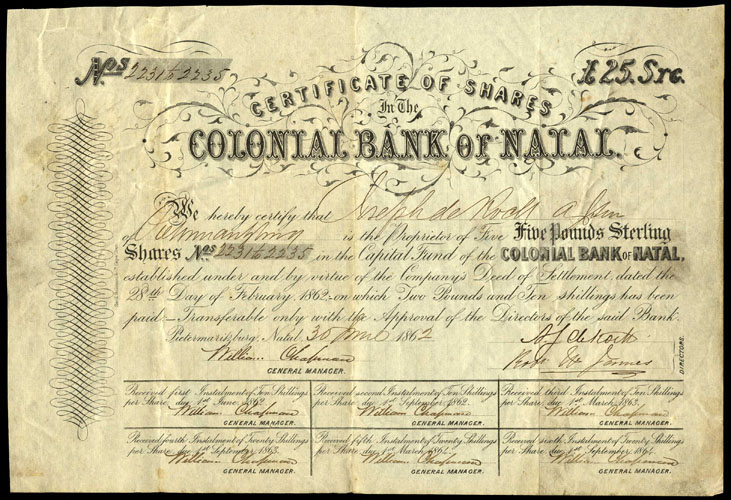 Nos 2231 to 2235
£25. Stg.
CERTIFICATE OF SHARES
In The
COLONIAL BANK OF NATAL.
We hereby certify that Joseph de Kock
of is the Proprietor of Five Five Pounds Sterling
Shares Nos 2231 to 2235 in the Capital Fund of the COLONIAL BANK OF NATAL,
established under and by virtue of the Company's Deed of Settlement, dated the
28th Day of February 1862, on which Two Pounds and Ten shillings has been
paid – Transferable only with the Approval of the Directors of the said Bank.
Pietermaritzburg, Natal 30 June 1862
William Chapman
GENERAL MANAGER.
A J de Kock
DIRECTORS.
Received first Instalment of Ten Shillings
per Share due 1st June 1862.
William Chapman
GENERAL MANAGER.
Received second Instalment of Ten Shillings
per Share due 1st September 1862.
William Chapman
GENERAL MANAGER.
Received third Instalment of Ten Shillings
per Share due 1st March 1863.
William Chapman
GENERAL MANAGER.
Received fourth Instalment of Twenty Shillings
per Share due 1st September 1863.
William Chapman
GENERAL MANAGER.
Received fifth Instalment of Twenty Shillings
per Share due 1st March 1864.
William Chapman
GENERAL MANAGER.
Received sixth Instalment of Twenty Shillings
per Share due 1st September 1864.
William Chapman
GENERAL MANAGER.